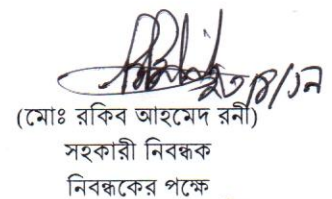 (মোঃ রকিব আহমেদ রনী)
সহকারী নিবন্ধক
নিবন্ধকের পক্ষে